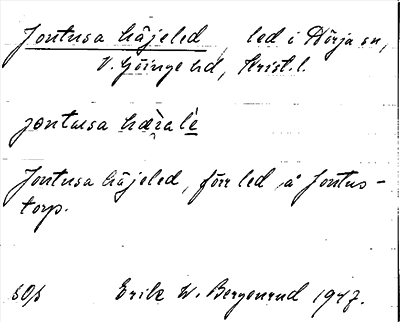 Jontusa häjeled, led i Nörja sn,
V. Göinge hd, Krist. l.
jontusa hæ̀ralé
Jontusa häjeled, förr led å Jontus-
torp.
Erik W. Bergenrud 1947.